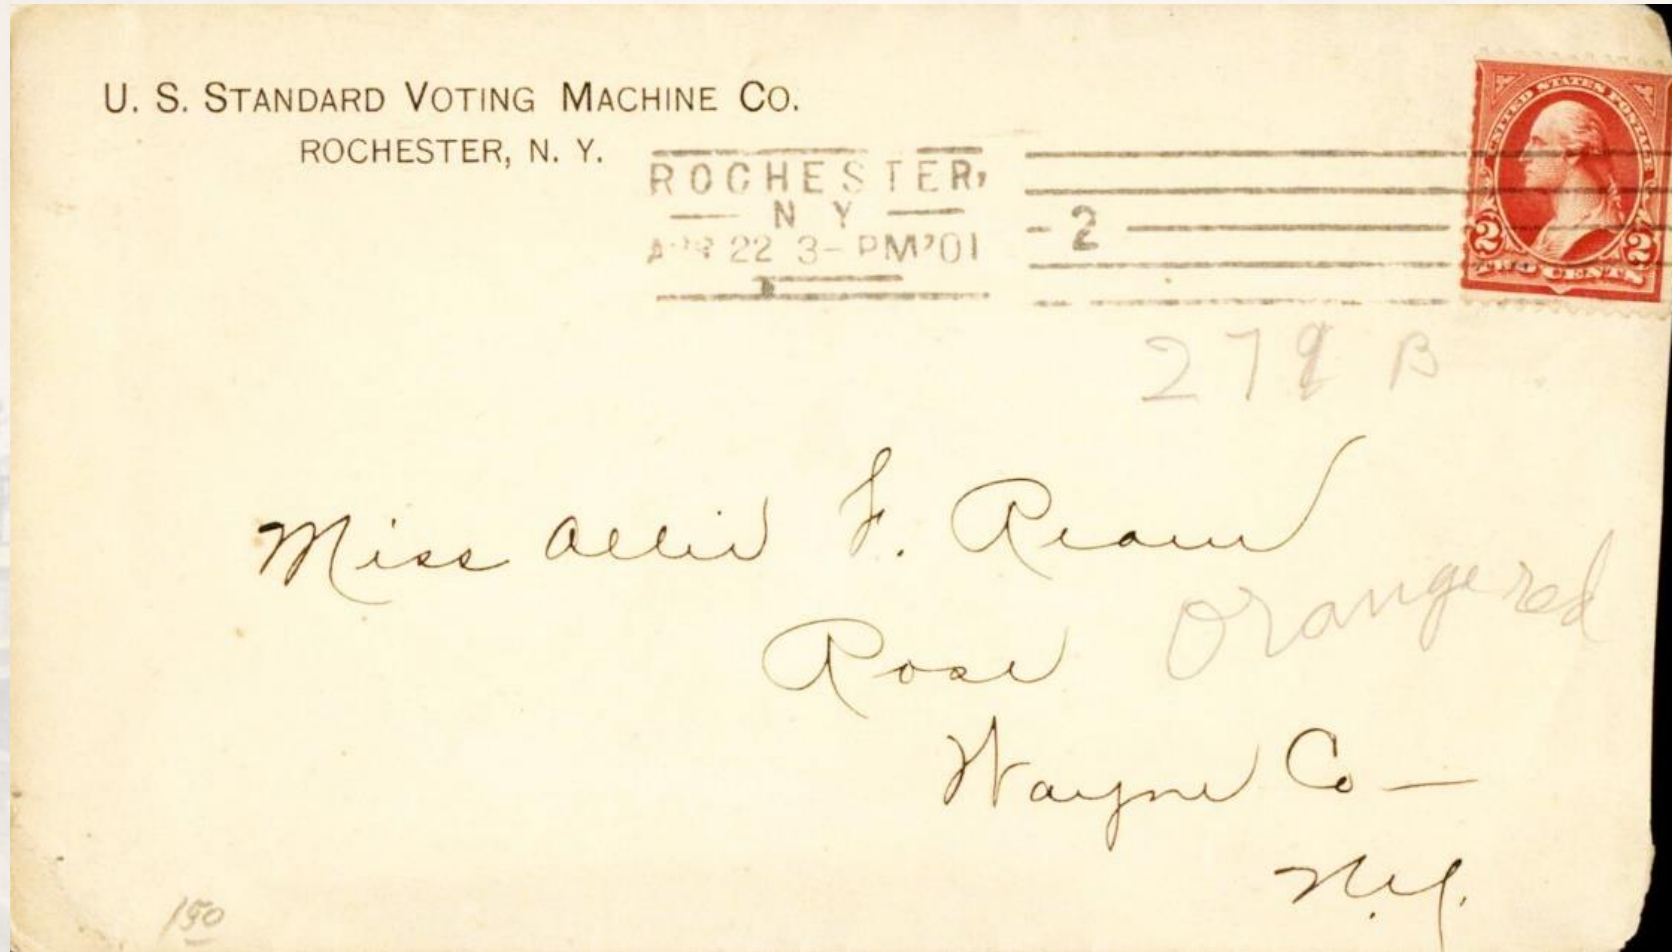 U. S. STANDARD VOTING MACHINE CO.
ROCHESTER, N. Y.
ROCHESTER,
N Y
APR 22 3-PM'01
2
UNITED STATES POSTAGE
2 2
TWO CENTS
279 B
Miss Allie F. Ream
orange red
Rose
Wayne Co —
N.Y.
150